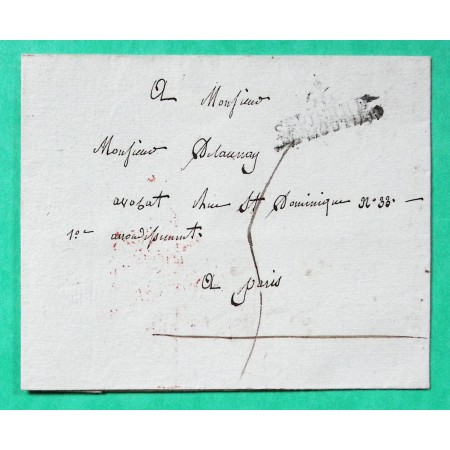 A Monsieur
Monsieur Delaunay
avocat Rue St Dominique N° 33. —
1er arrondissement.
A paris
5